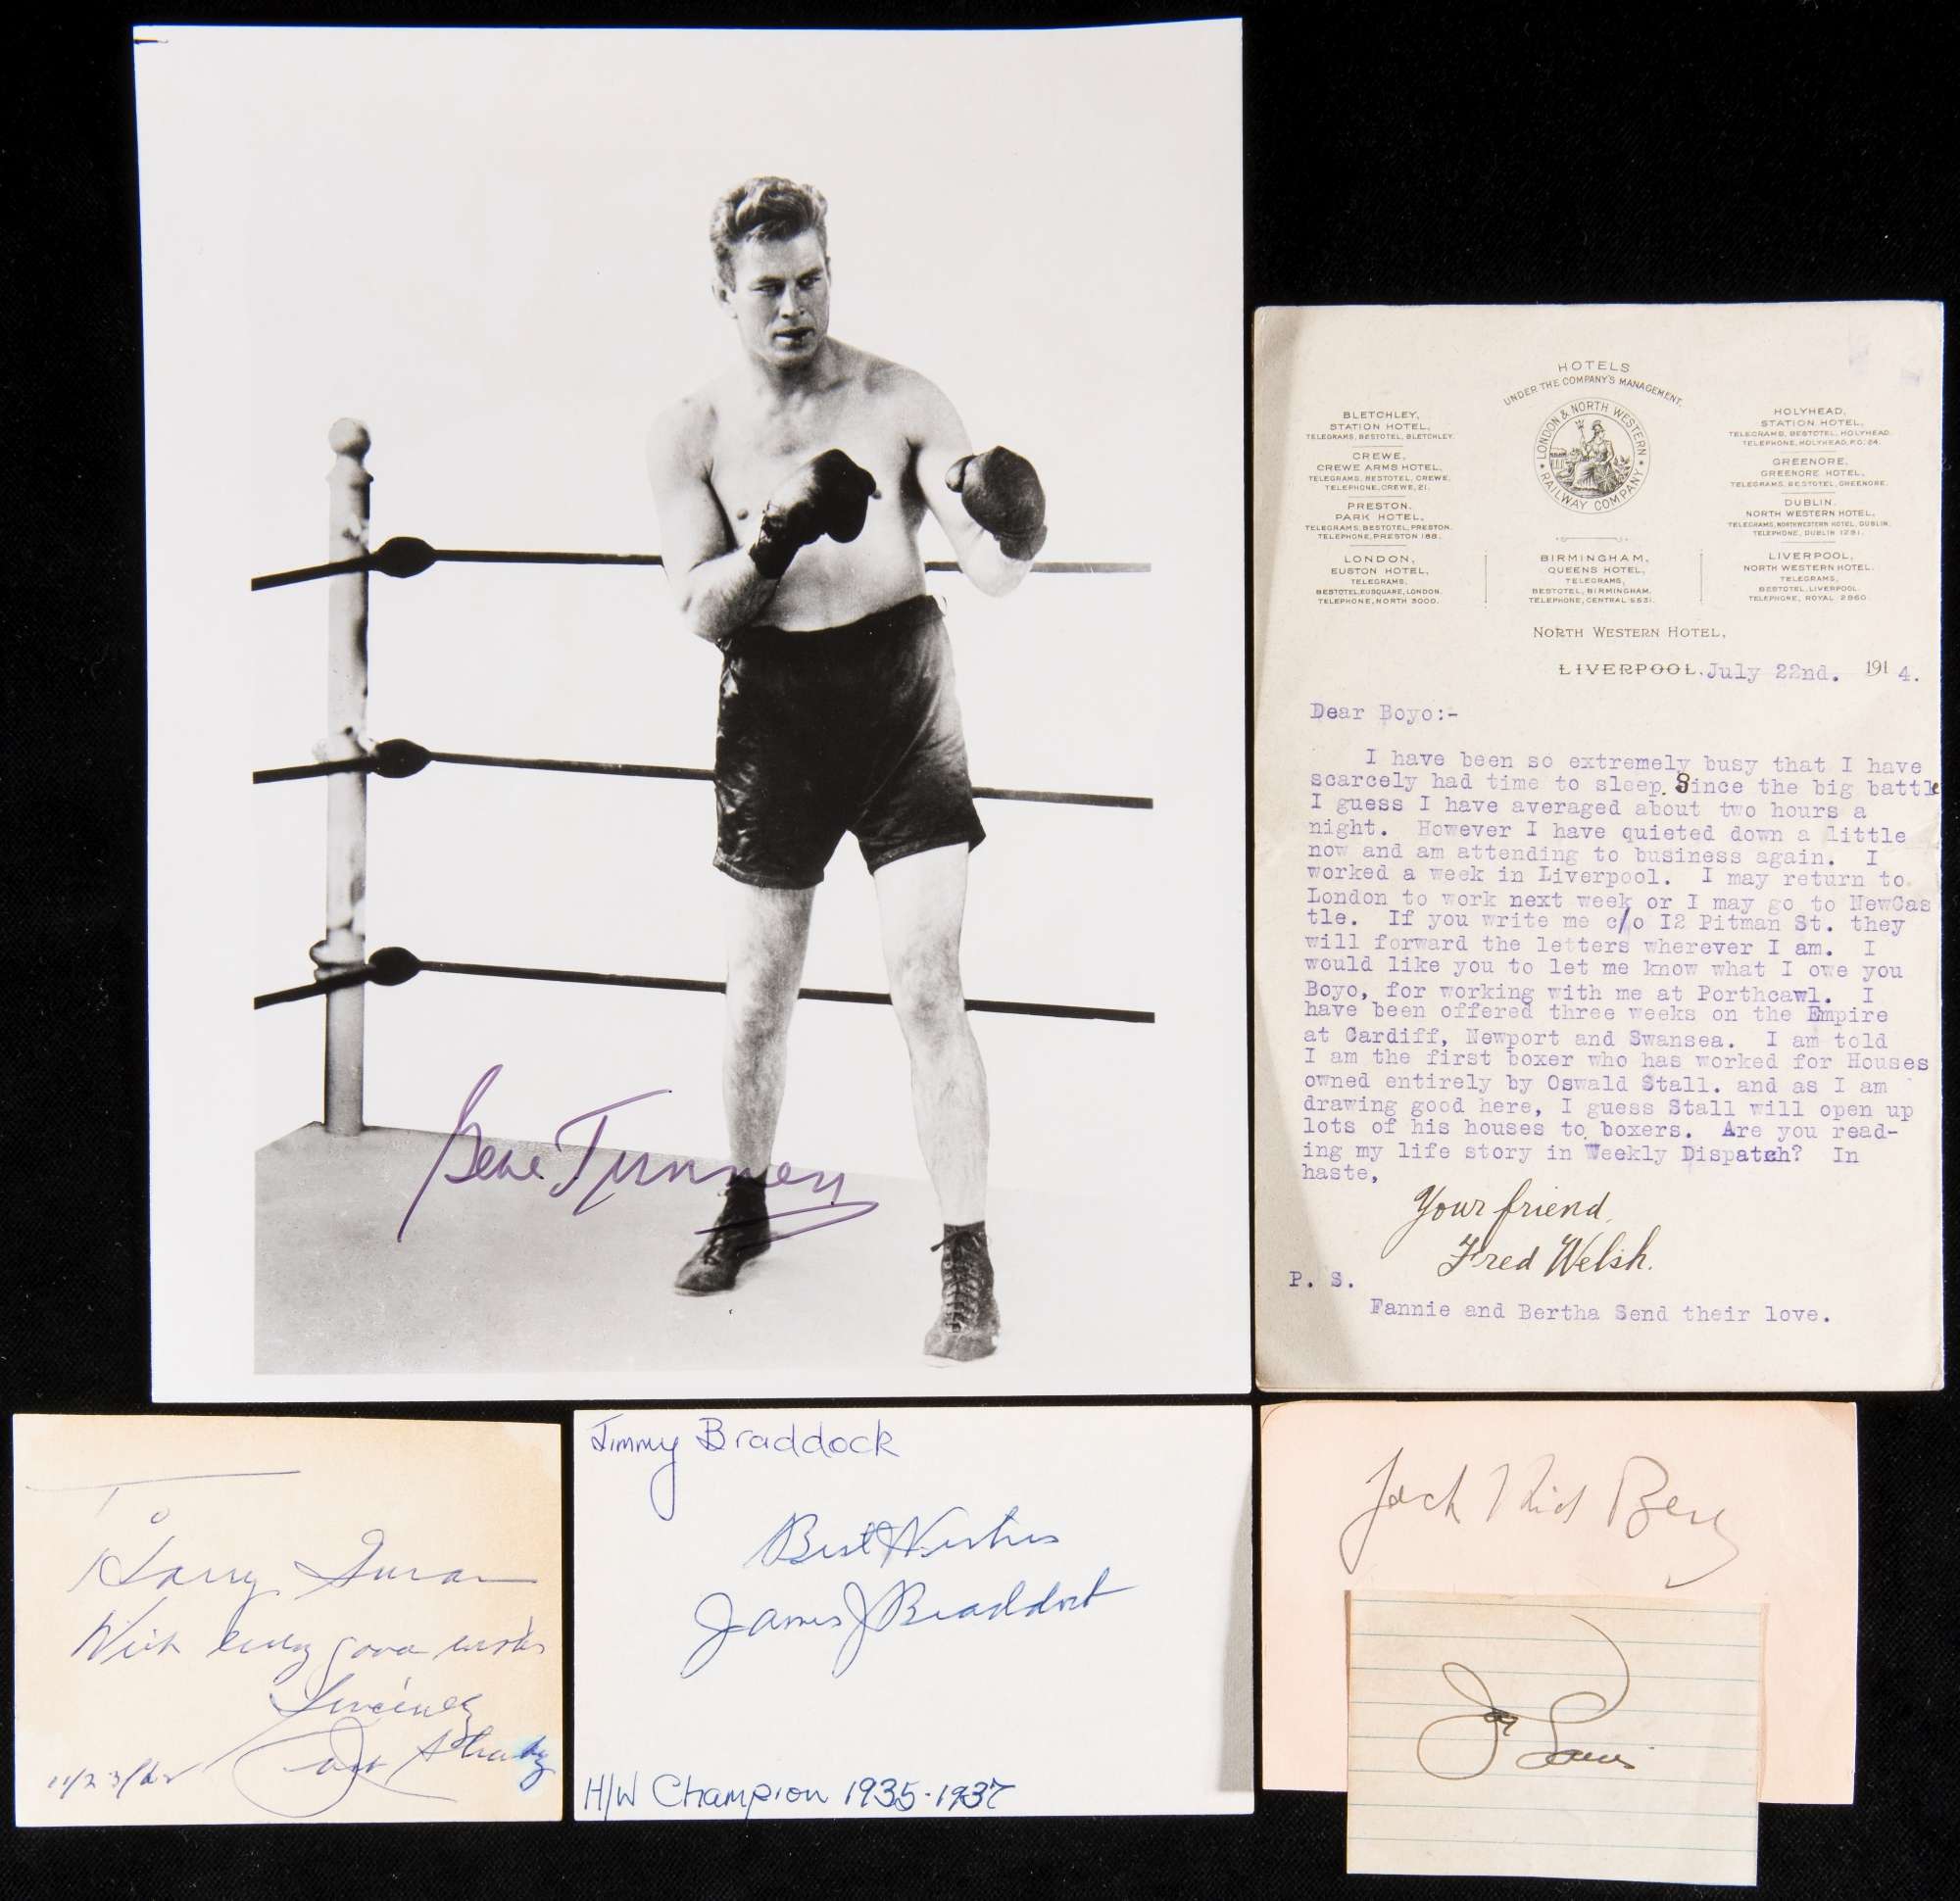 Gene Tunney
HOTELS
UNDER THE COMPANY'S MANAGEMENT.
LONDON & NORTH WESTERN
RAILWAY COMPANY
BLETCHLEY,
STATION HOTEL,
TELEGRAMS, BESTOTEL, BLETCHLEY.
CREWE,
CREWE ARMS HOTEL,
TELEGRAMS, BESTOTEL, CREWE.
TELEPHONE, CREWE, 21.
PRESTON.
PARK HOTEL,
TELEGRAMS, BESTOTEL, PRESTON.
TELEPHONE, PRESTON 188.
LONDON,
EUSTON HOTEL,
TELEGRAMS,
BESTOTEL, EUSQUARE, LONDON.
TELEPHONE, NORTH 3000.
BIRMINGHAM,
QUEENS HOTEL,
TELEGRAMS,
BESTOTEL, BIRMINGHAM.
TELEPHONE, CENTRAL 5531.
HOLYHEAD,
STATION HOTEL,
TELEGRAMS, BESTOTEL, HOLYHEAD.
TELEPHONE, HOLYHEAD, P.O. 24.
GREENORE,
GREENORE HOTEL,
TELEGRAMS, BESTOTEL, GREENORE.
DUBLIN,
NORTH WESTERN HOTEL,
TELEGRAMS, NORTHWESTERN HOTEL, DUBLIN.
TELEPHONE, DUBLIN 1231.
LIVERPOOL,
NORTH WESTERN HOTEL,
TELEGRAMS,
BESTOTEL, LIVERPOOL.
TELEPHONE, ROYAL 2960
NORTH WESTERN HOTEL,
LIVERPOOL. July 22nd. 1914.
Dear Boyo:-
I have been so extremely busy that I have
scarcely had time to sleep. Since the big battle
I guess I have averaged about two hours a
night. However I have quieted down a little
now and am attending to business again. I
worked a week in Liverpool. I may return to
London to work next week or I may go to NewCas
tle. If you write me c/o I2 Pitman St. they
will forward the letters wherever I am. I
would like you to let me know what I owe you
Boyo, for working with me at Porthcawl. I
have been offered three weeks on the Empire
at Cardiff, Newport and Swansea. I am told
I am the first boxer who has worked for Houses
owned entirely by Oswald Stall. and as I am
drawing good here, I guess Stall will open up
lots of his houses to boxers. Are you read-
ing my life story in Weekly Dispatch? In
haste,
Your friend,
Fred Welsh.
P. S.
Fannie and Bertha Send their love.
To
Harry
With every good wish
Sincerely
Jack Sharkey
Jimmy Braddock
Best Wishes
James J Braddock
H/W Champion 1935-1937
Jack Kid Berg
Joe Louis